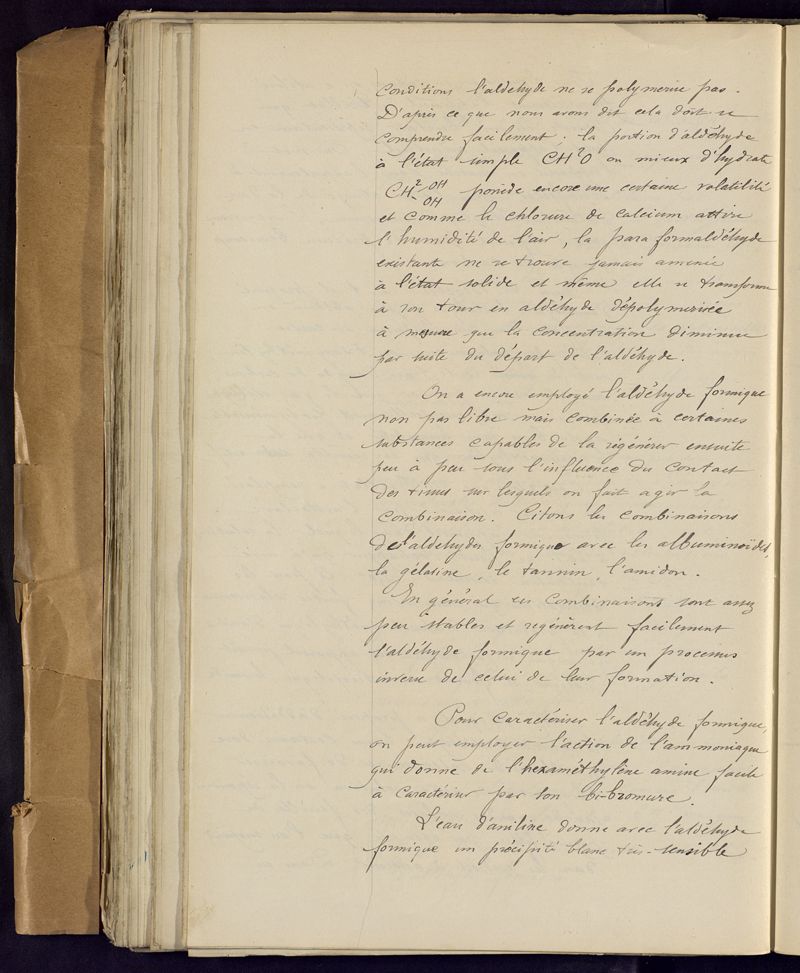 conditions l'aldehyde ne se polymerise pas.
D'après ce que nous avons dit cela doit se
comprendre facilement ; la portion d'aldéhyde
à l'état simple CH²O ou mieux d'hydrate
CH² - OH
- OH possède encore une certaine volatilité
et comme le chlorure de calcium attire
l'humidité de l'air, la para formaldéhyde
existante ne se trouve jamais amenée
à l'état solide et même elle se transforme
à son tour en aldéhyde dépolymerisée
à mesure que la concentration diminue
par suite du départ de l'aldéhyde.
On a encore employé l'aldéhyde formique
non pas libre mais combinée à certaines
substances capables de la régénérer ensuite
peu à peu sous l'influence du contact
des tissus sur lesquels on fait agir la
combinaison. Citons les combinaisons
de l'aldehydes formique avec les albuminoïdes,
la gélatine, le tannin, l'amidon.
En général ces combinaisons sont assez
peu stables et regénèrent facilement
l'aldéhyde formique par un processus
inverse de celui de leur formation.
Pour caractériser l'aldéhyde formique,
on peut employer l'action de l'ammoniaque
qui donne de l'hexaméthylène amine facile
à caractériser par son bi-bromure.
L'eau d'aniline donne avec l'aldéhyde
formique un précipité blanc très-sensible